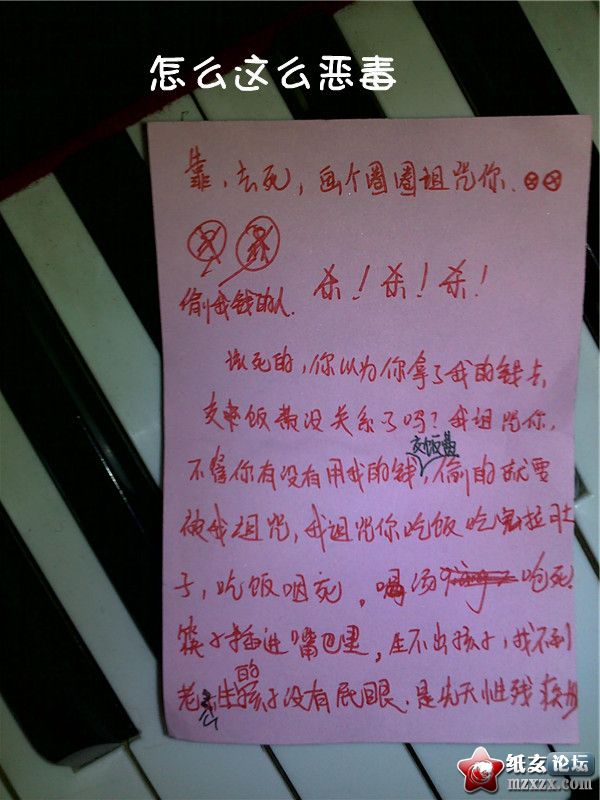 怎么这么恶毒
靠，去死，画个圈圈诅咒你、
偷我钱的人. 杀！杀！杀！
该死的，你以为你拿了我的钱去
交饭费没关系了吗？我诅咒你，
交饭费
不管你有没有用我的钱，偷的就要
被我诅咒，我诅咒你吃饭吃坏拉肚
子，吃饭咽死，喝汤呛死
筷子插进嘴巴里，生不出孩子，找不到
老公生的孩子没有屁眼，是先天性残疾
纸玄论坛
mzxzx.com